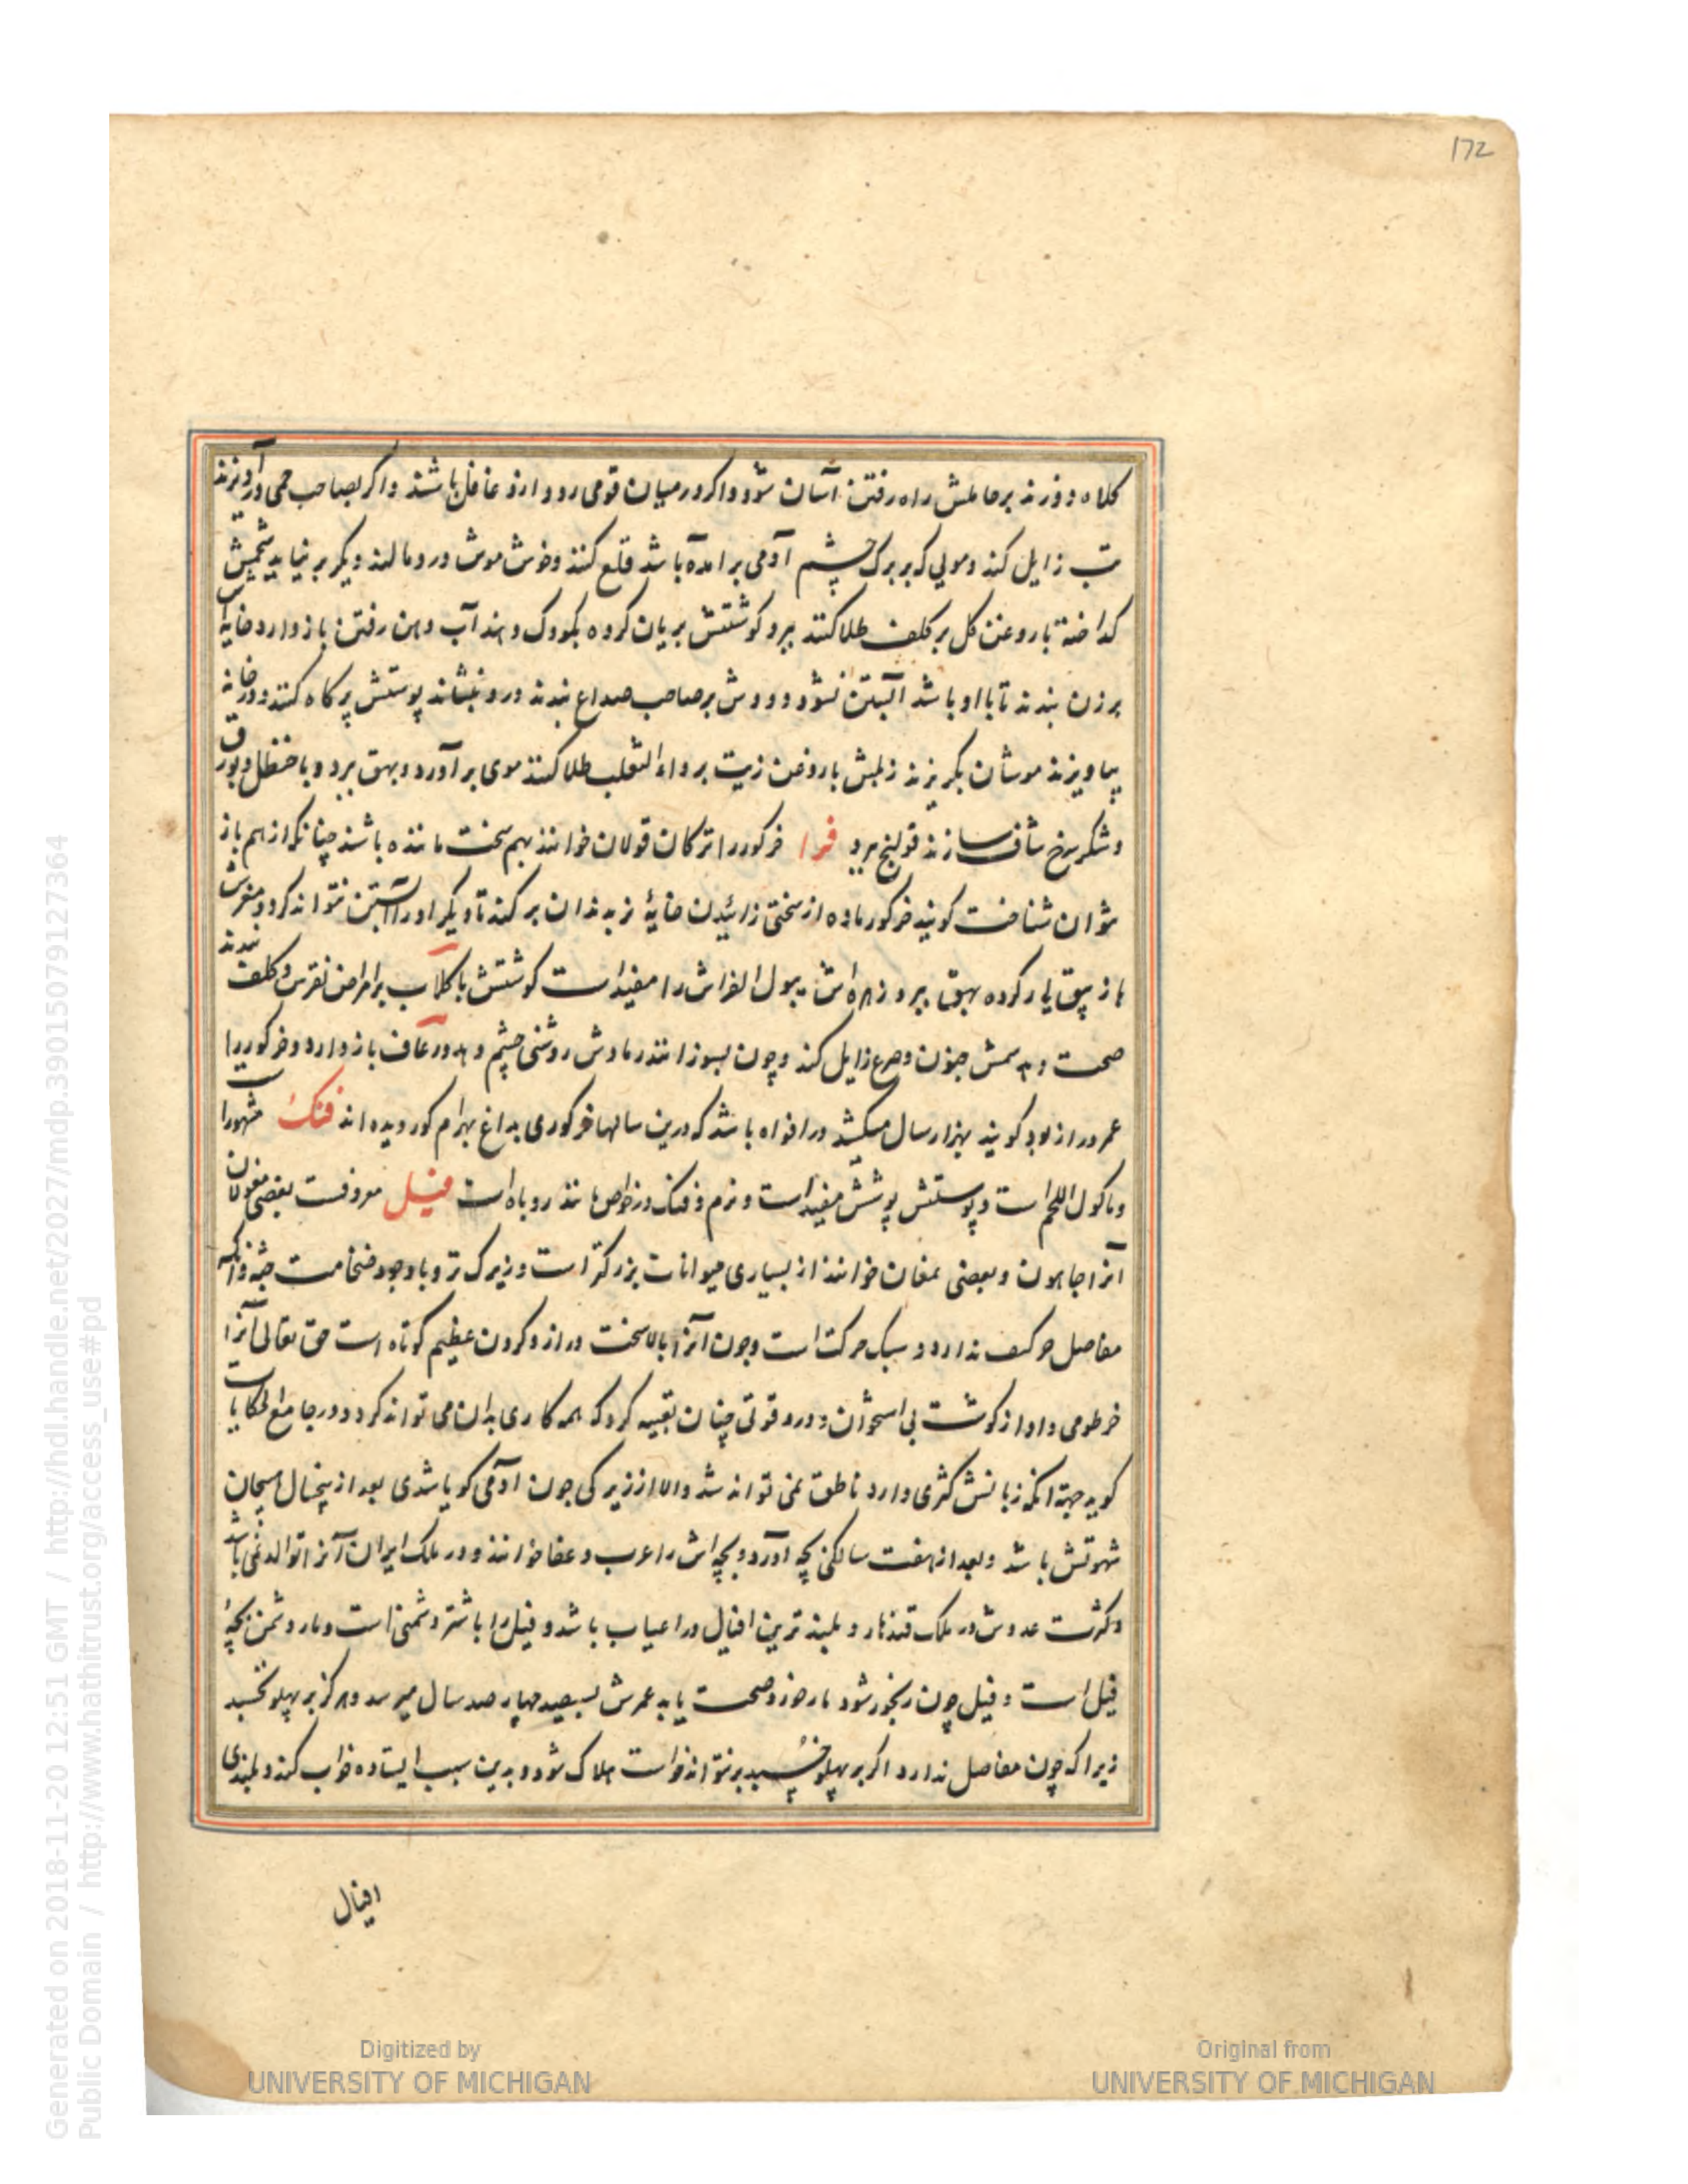 172
کلاه دوزند بر حاملش راه رفتن آسان شود و اکر در میان قومی رود ازو غافل باشند و اکر بصاحب حمی درآویزند
تب زایل کند و مویی که بر برک چشم آدمی برآمده باشد قلع کنند و خون موش درو مالند دیکر بر نیاید شحمش
کداخته با روغن کل بر کلف طلا کنند ببرد کوشتش بریان کرده بکودک دهند آب دهن رفتن باز دارد خایه‌اش
بر زن بندند تا با او باشد آبستن نشود و دمش بر صاحب صداع بندند درو بنشاند پوستش پر کاه کنند و در خانه
بیاویزند موشان بکریزند زبلش با روغن زیت بر داء الثعلب طلا کنند موی برآورد و بهق ببرد و با حنظل و بورق
و شکر سرخ شاف سازند قولنج ببرد فرا خرکور را ترکان قولان خوانند بهم سخت ماننده باشند چنانکه از هم باز
نتوان شناخت کویند خرکور ماده از سختی زائیدن خایهٔ نر بدندان بر کند تا دیکر او را آبستن نتواند کرد و مغزش
با زیبق یار کرده بهق ببرد زهره‌اش ببول الفراش را مفید است کوشتش با کلاب بر امراض نقرس و کلف بندند
صحت دهد سمش جنون و صرع زایل کند و چون بسوزانند رمادش روشنی چشم دهد و رعاف باز دارد و خرکور را
عمر دراز بود کویند بهزار سال میکشد و در افواه باشد که درین سالها خرکوری بداغ بهرام کور دیده‌اند فنک مشهور است
و ماکول اللحم است و پوستش پوشش مفید است و نرم و فنک در خواص مانند روباه است فیل معروفست بعضی مغولان
آنرا جاهون و بعضی نمغان خوانند از بسیاری حیوانات بزرکتر است و زیرک تر و با وجود ضخامت جثه و آنکه
مفاصل حرکت ندارد سبک حرکت است و چون آنرا بالا سخت دراز و کردن عظیم کوتاه است حق تعالی آنرا
خرطومی داد از کوشت بی استخوان و درو قوتی چنان تعبیه کرد که همه کاری بدان می تواند کرد و در جامع الحکایات
کوید جهة آنکه زبانش کژی دارد ناطق نمی تواند شد والا از زیرکی چون آدمی کویا شدی بعد از پنج سال هیجان
شهوتش باشد و بعد از هفت سالکی بچه آورد و بچه‌اش را عرب دعفا خوانند و در ملک ایران آنرا توالد نمی باشد
و کثرت عدوش در ملک قندهار و بلندترین افیال در اعیاب باشد و فیل را با شتر دشمنی است و مار دشمن بچهٔ
فیل است و فیل چون رنجور شود مار خورد و صحت یابد عمرش بسیصد چهار صد سال میرسد و هرکز بر پهلو نخسبد
زیرا که چون مفاصل ندارد اکر بر پهلو خسبد بر نتواند خواست هلاک شود و بدین سبب ایستاده خواب کند و بلندی
افیال
Generated on 2018-11-20 12:51 GMT / http://hdl.handle.net/2027/mdp.39015079127364
Public Domain / http://www.hathitrust.org/access_use#pd
Digitized by
UNIVERSITY OF MICHIGAN
Original from
UNIVERSITY OF MICHIGAN